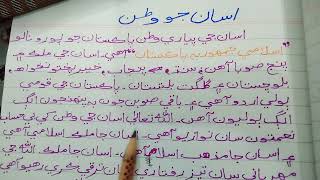 اسان جو وطن
اسان جي پياري وطن پاڪستان جو پورو نالو
"اسلامي جمهوريه پاڪستان" آهي. اسان جي ملڪ ۾
پنج صوبا آهن: سنڌ، پنجاب، خيبر پختونخواه،
بلوچستان ۽ گلگت بلتستان. پاڪستان جي قومي
ٻولي اردو آهي ۽ باقي صوبن جون به پنهنجون الڳ
ٻوليون آهن. الله تعاليٰ اسان جي وطن کي بي حساب
نعمتون سان نوازيو آهي. اسان جا ملڪ اسلامي آهي
۽ اسان جا مذهب اسلام آهي. اسان جا ملڪ الله جي
مهرباني سان تيز رفتاري سان ترقي ڪري رهيو آهي